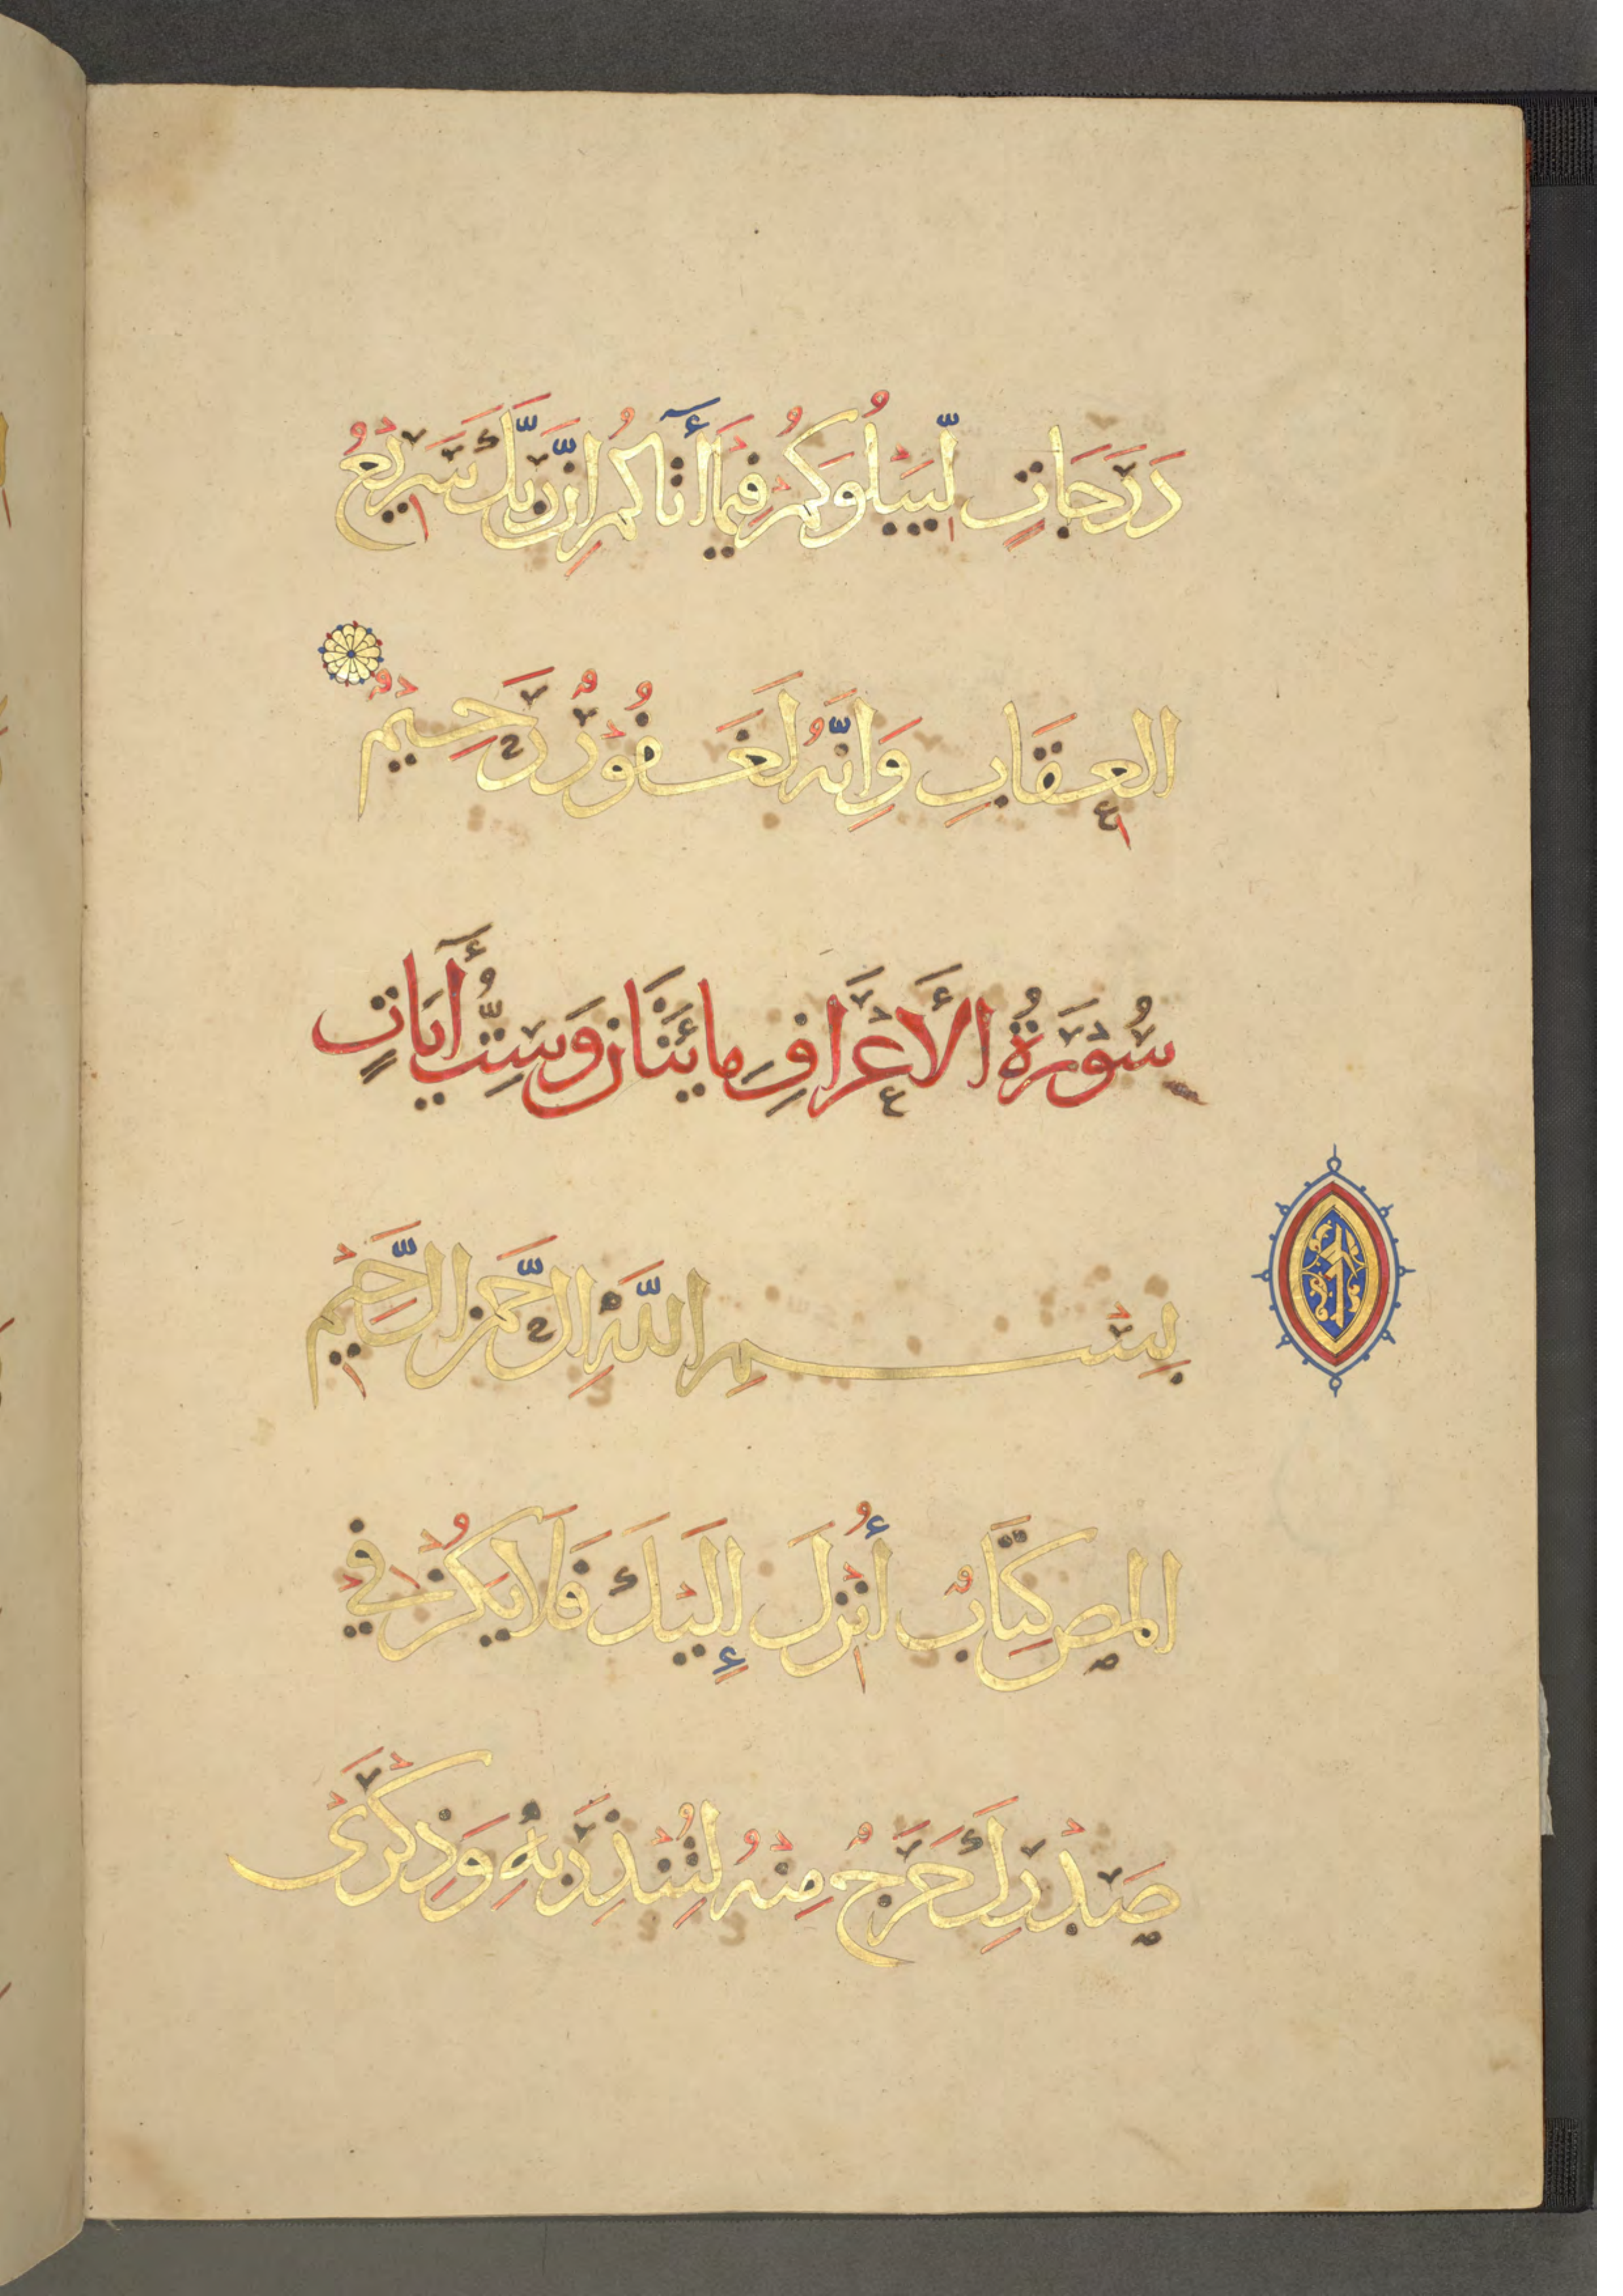 دَرَجَاتٍ لِّيَبْلُوَكُمْ فِيمَا أٓتَاكُمْ اِنَّ رَبَّكَ سَرِيعُ
العِقَابِ وَاِنَّهُ لَغَفُورٌ رَحِيمٌ
سُوْرَةُ الأَعْرَافِ مِائَتَانِ وَسِتُّ أٓيَاتٍ
بِسْمِ اللَّهِ الرَّحْمَنِ الرَّحِيْمِ
المص كِتَابٌ أُنْزِلَ إِلَيْكَ فَلَا يَكُنْ فِيْ
صَدْرِكَ حَرَجٌ مِنْهُ لِتُنْذِرَ بِهِ وَذِكْرَىْ